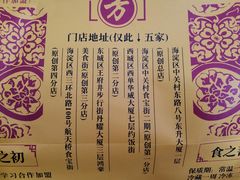 芳
门店地址(仅此↓五家)
海淀区中关村东路八号东升大厦一层
(原创总店)
海淀区中关村食宝街二期
(原创第一分店)
西城区西单华威大厦七层约饭街
(原创第二分店)
东城区王府井步行街丹耀大厦三层
美食街(原创第三分店)
海淀区西三环北路100号航天桥食宝街
(原创第四分店)
之初
食之
学习合作加盟
保质期:常温
冷藏一周冷